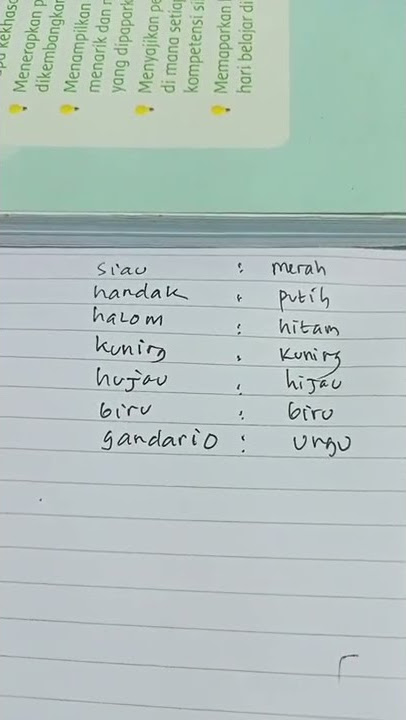 Menerapkan p
dikembangkan
Menampilkan
menarik dan
yang dipapark
Menyajikan pe
di mana setiap
kompetensi si
Memaparkan
hari belajar di
siau : merah
handak : putih
halom : hitam
kuning : kuning
hujau : hijau
biru : biru
gandario : ungu